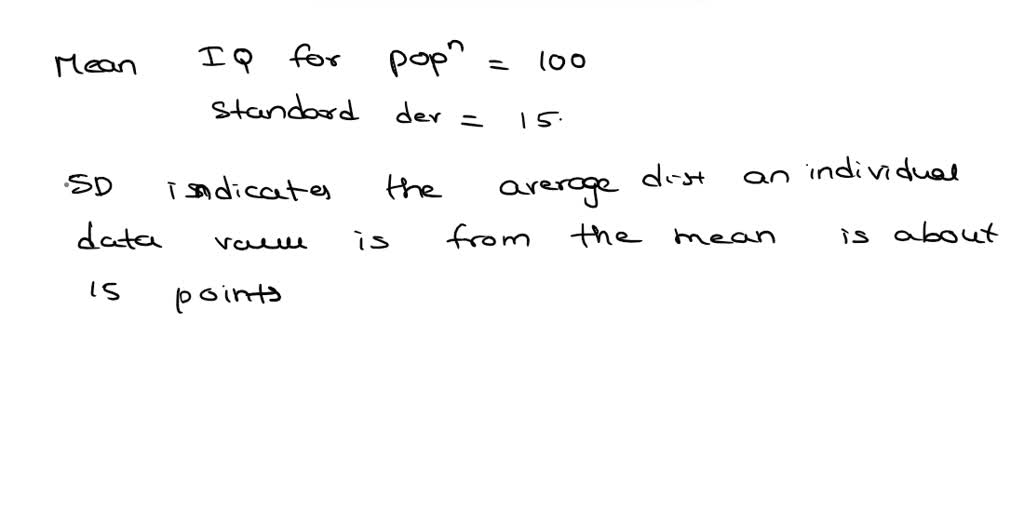 Mean IQ for popⁿ = 100
Standard dev = 15.
SD indicates the average dist an individual
data value is from the mean is about
15 points